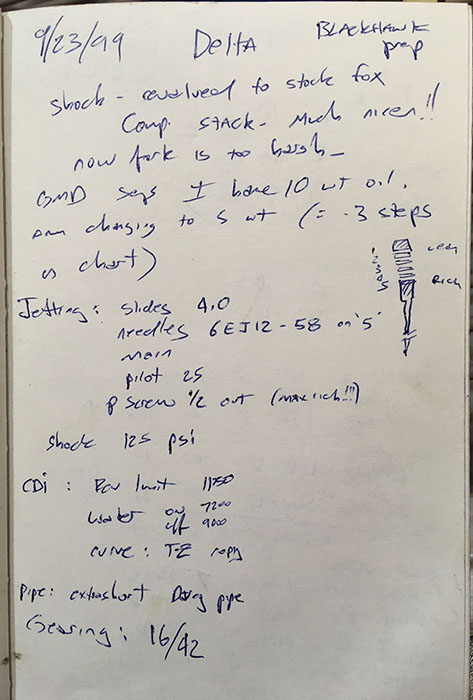 9/23/99 Delta BLACKHAWK prep
shock - revalved to stock fox
Comp. STACK - Much nicer!!
now fork is too harsh -
GMD says I have 10 wt oil.
am changing to 5 wt (= -3 steps
on chart)
1 lean
2
3
4
5 Rich
Jetting: slides 4.0
needles 6EJ12-58 on '5'
main
pilot 25
p screw 1/2 out (max rich!!!)
shock 125 psi
CDi: Rev limit 11750
water on 7200
off 9000
curve: T-Z copy
Pipe: extrashort Doug pipe
Gearing: 16/42